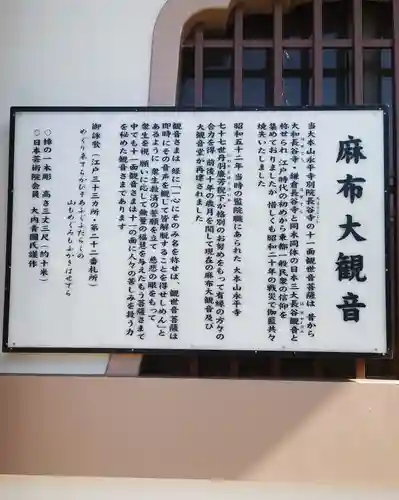 麻布大観音
当大本山永平寺別院長谷寺の十一面観世音菩薩は 昔から
大和長谷寺 鎌倉長谷寺と同木同体の日本三大長谷観音と
称せられ江戸時代の初めから東都一般民衆の信仰を
集めておりましたが惜しくも昭和二十年の戦災で伽藍共々
焼失いたしました
昭和五十二年当時の監院職にあられた 大本山永平寺
七十七世丹羽廉芳貎下が格別のお努めをもって有縁の方々の
合力を得 前後十年の歳月を閲して現在の麻布大観音及び
大観音堂が再建されました
観音さまは 経に「一心にその名を称せば、観世音菩薩は
即時にその音声を観じて皆解脱することを得せしめん」と
あるように 衆生救済の誓願を立て 慈悲の眼をもって
衆生を視、願いに応じて無量の福慧を与えたもう菩薩さまで
中でも十一面観音さまは十一の面に人々の苦しみを救う力
を秘めた観音さまであります
御詠歌(江戸三十三カ所・第二十二番札所)
めぐり来てちかひをあふぐふだらくの
山もへぐみもふかきはせでら
○楠の一木彫 高さ三丈三尺(約十米)
○日本芸術院会員 大内青圃氏謹作